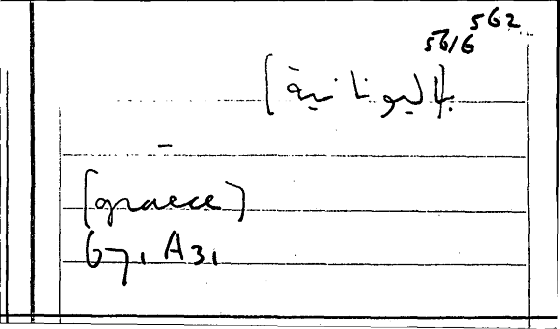 562
56/6
(باليونانية)
(graece)
67, A3,